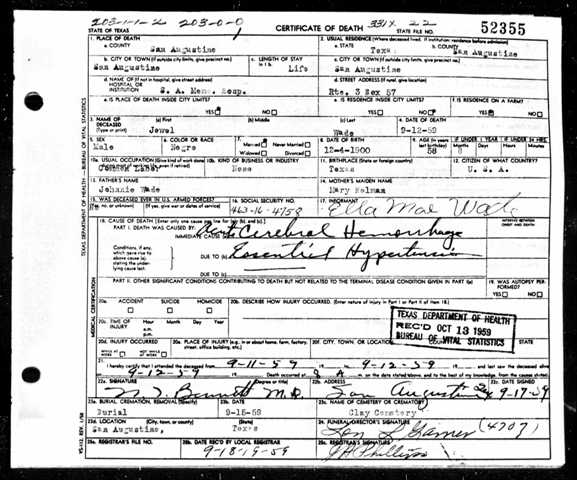 203-1-1-2 203-0-0
STATE OF TEXAS CERTIFICATE OF DEATH 331X 22 STATE FILE NO. 52355
1. PLACE OF DEATH 2. USUAL RESIDENCE (Where deceased lived. If institution: residence before admission)
a. COUNTY San Augustine a. STATE Texas b. COUNTY San Augustine
b. CITY OR TOWN (If outside city limits, give precinct no.) c. LENGTH OF STAY c. CITY OR TOWN (If outside city limits, give precinct no.)
San Augustine Life San Augustine
d. NAME OF (If not in hospital, give street address) HOSPITAL OR INSTITUTION S. A. Mem. Hosp. d. STREET ADDRESS (If rural, give location) Rte. 3 Box 57
e. IS PLACE OF DEATH INSIDE CITY LIMITS? YES NO e. IS RESIDENCE INSIDE CITY LIMITS? YES NO f. IS RESIDENCE ON A FARM? YES NO
3. NAME OF DECEASED (Type or print) (a) First Jewel (b) Middle (c) Last Wade 4. DATE OF DEATH 9-12-59
5. SEX Male 6. COLOR OR RACE Negro 7. Married Never Married Widowed Divorced 8. DATE OF BIRTH 12-4-1900 9. AGE (In years last birthday) 58 IF UNDER 1 YEAR Months Days IF UNDER 24 HRS. Hours Minutes
10a. USUAL OCCUPATION (Give kind of work done 10b. KIND OF BUSINESS OR INDUSTRY 11. BIRTHPLACE (State or foreign country) 12. CITIZEN OF WHAT COUNTRY?
Common Labor None Texas U. S. A.
13. FATHER'S NAME 14. MOTHER'S MAIDEN NAME
Johnnie Wade Mary Holman
15. WAS DECEASED EVER IN U.S. ARMED FORCES? 16. SOCIAL SECURITY NO. 17. INFORMANT
(Yes, no, or unknown) (If yes, give war or dates of service) 463-16-4158 Ella Mae Wade
18. CAUSE OF DEATH (Enter only one cause per line for (a), (b), and (c).) INTERVAL BETWEEN ONSET AND DEATH
PART I. DEATH WAS CAUSED BY: IMMEDIATE CAUSE Acute Cerebral Hemorrhage
Conditions, if any, which gave rise to above cause (a) stating the underlying cause last. DUE TO Essential Hypertension
DUE TO (c)
PART II. OTHER SIGNIFICANT CONDITIONS CONTRIBUTING TO DEATH BUT NOT RELATED TO THE TERMINAL DISEASE CONDITION GIVEN IN PART I(a) 19. WAS AUTOPSY PERFORMED? YES NO
20a. ACCIDENT SUICIDE HOMICIDE 20b. DESCRIBE HOW INJURY OCCURRED. (Enter nature of injury in Part I or Part II of item 18.)
20c. TIME OF INJURY Hour Month Day Year a.m. p.m.
TEXAS DEPARTMENT OF HEALTH
REC'D OCT 13 1959
BUREAU OF VITAL STATISTICS
20d. INJURY OCCURRED 20e. PLACE OF INJURY (e.g., in or about home, farm, factory, street, office building, etc.) 20f. CITY, TOWN, OR LOCATION COUNTY
21. I hereby certify that I attended the deceased from 9-11-59 9-12-59 and last saw the deceased alive
9-12-59 Death occurred at A m. on the date stated above, and to the best of my knowledge, from the causes stated.
22a. SIGNATURE (Degree or title) 22b. ADDRESS 22c. DATE SIGNED
M.D. San Augustine 9-17-59
23a. BURIAL, CREMATION, REMOVAL (Specify) 23b. DATE 23c. NAME OF CEMETERY OR CREMATORY
Burial 9-15-59 Clay Cemetery
23d. LOCATION (City, town, or county) (State) 24. FUNERAL DIRECTOR'S SIGNATURE
San Augustine, Texas (4707)
25a. REGISTRAR'S FILE NO. 25b. DATE REC'D BY LOCAL REGISTRAR 25c. REGISTRAR'S SIGNATURE
9-18-1959 Phillips
TEXAS DEPARTMENT OF HEALTH—BUREAU OF VITAL STATISTICS
MEDICAL CERTIFICATION
VS-112, REV. 1/58